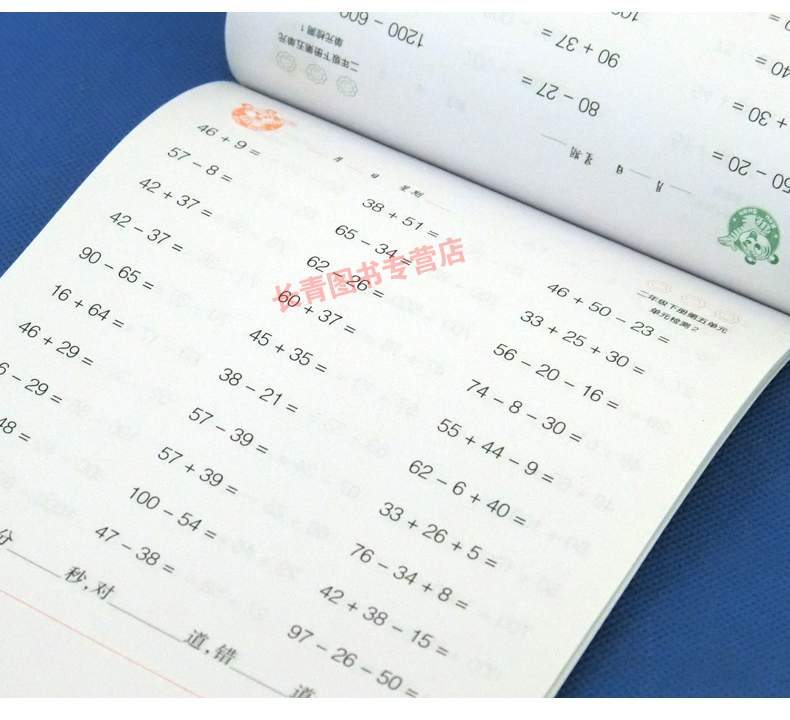 1200 - 600
二年级下册第五单元
单元检测 1
90 + 37 =
80 - 27 =
+ 30 =
50 - 20 =
月 日 星期
月 日 星期
二年级下册第五单元
单元检测 2
46 + 9 =
57 - 8 =
42 + 37 =
42 - 37 =
90 - 65 =
16 + 64 =
46 + 29 =
6 - 29 =
48 =
38 + 51 =
65 - 34 =
62 - 26 =
60 + 37 =
45 + 35 =
38 - 21 =
57 - 39 =
57 + 39 =
100 - 54 =
47 - 38 =
46 + 50 - 23 =
33 + 25 + 30 =
56 - 20 - 16 =
74 - 8 - 30 =
55 + 44 - 9 =
62 - 6 + 40 =
33 + 26 + 5 =
76 - 34 + 8 =
42 + 38 - 15 =
97 - 26 - 50 =
分____秒,对____道,错____道
长青图书专营店